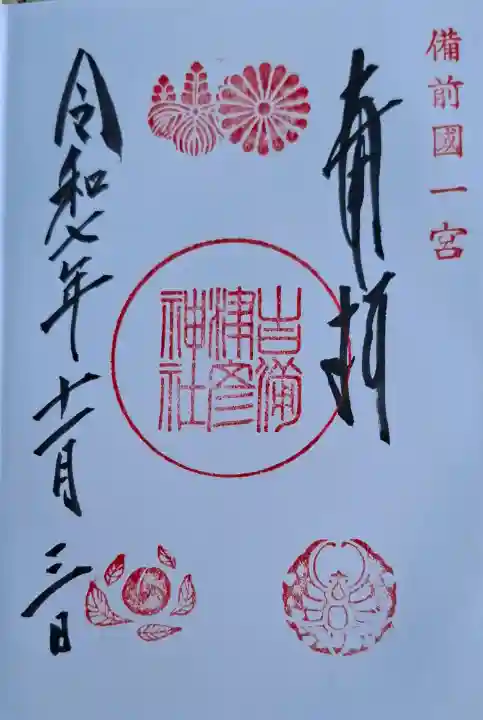 備前國一宮
奉拝
吉備
津彦
神社
令和七年十一月三日